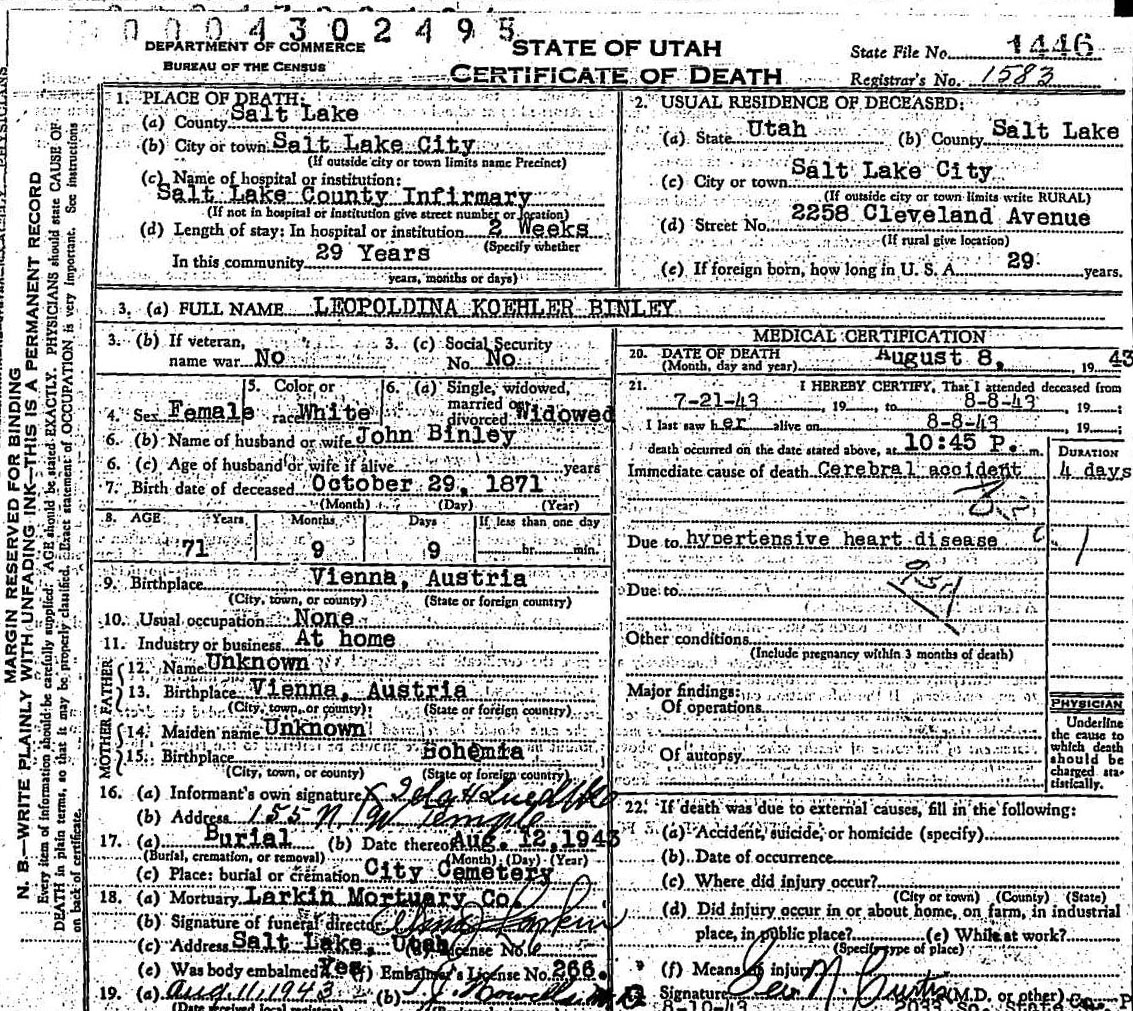 0004302495
DEPARTMENT OF COMMERCE
BUREAU OF THE CENSUS
STATE OF UTAH
CERTIFICATE OF DEATH
State File No. 1446
Registrar's No. 1583
MARGIN RESERVED FOR BINDING
N. B.—WRITE PLAINLY WITH UNFADING INK—THIS IS A PERMANENT RECORD
Every item of information should be carefully supplied. AGE should be stated EXACTLY. PHYSICIANS should state CAUSE OF
DEATH in plain terms, so that it may be properly classified. Exact statement of OCCUPATION is very important. See instructions
on back of certificate.
1. PLACE OF DEATH:
(a) County Salt Lake
(b) City or town Salt Lake City
(If outside city or town limits name Precinct)
(c) Name of hospital or institution:
Salt Lake County Infirmary
(If not in hospital or institution give street number or location)
(d) Length of stay: In hospital or institution 2 Weeks
(Specify whether
In this community 29 Years
years, months or days)
2. USUAL RESIDENCE OF DECEASED:
(a) State Utah (b) County Salt Lake
(c) City or town Salt Lake City
(If outside city or town limits write RURAL)
(d) Street No. 2258 Cleveland Avenue
(If rural give location)
(e) If foreign born, how long in U. S. A. 29 years.
3. (a) FULL NAME LEOPOLDINA KOEHLER BINLEY
3. (b) If veteran, name war No
3. (c) Social Security No. No
4. Sex Female
5. Color or race White
6. (a) Single, widowed, married or divorced Widowed
6. (b) Name of husband or wife John Binley
6. (c) Age of husband or wife if alive years
7. Birth date of deceased October 29, 1871
(Month) (Day) (Year)
8. AGE Years Months Days If less than one day
71 9 9 hr. min.
9. Birthplace Vienna, Austria
(City, town, or county) (State or foreign country)
10. Usual occupation None
11. Industry or business At home
FATHER
12. Name Unknown
13. Birthplace Vienna, Austria
(City, town, or county) (State or foreign country)
MOTHER
14. Maiden name Unknown
15. Birthplace Bohemia
(City, town, or county) (State or foreign country)
16. (a) Informant's own signature
(b) Address 155 N 1 W Temple
17. (a) Burial (b) Date thereof Aug. 12, 1943
(Burial, cremation, or removal) (Month) (Day) (Year)
(c) Place: burial or cremation City Cemetery
18. (a) Mortuary Larkin Mortuary Co.
(b) Signature of funeral director Larkin
(c) Address Salt Lake, Utah (d) License No. 6
(e) Was body embalmed? Yes (f) Embalmer's License No. 266.
19. (a) Aug. 11, 1943 (b)
(Date received local registrar)
MEDICAL CERTIFICATION
20. DATE OF DEATH August 8, 1943
(Month, day and year)
21. I HEREBY CERTIFY, That I attended deceased from
7-21-43, 19 to 8-8-43, 19 ;
I last saw her alive on 8-8-43, 19 ;
death occurred on the date stated above, at 10:45 P. m.
DURATION
Immediate cause of death Cerebral accident 4 days
Due to hypertensive heart disease
Due to
Other conditions
(Include pregnancy within 3 months of death)
Major findings:
Of operations
Of autopsy
PHYSICIAN
Underline
the cause to
which death
should be
charged sta-
tistically.
22. If death was due to external causes, fill in the following:
(a) Accident, suicide, or homicide (specify)
(b) Date of occurrence
(c) Where did injury occur?
(City or town) (County) (State)
(d) Did injury occur in or about home, on farm, in industrial
place, in public place? (e) While at work?
(Specify type of place)
(f) Means of injury
Signature Geo. N. Curtis (M.D. or other)
8-10-43 2033 So. State